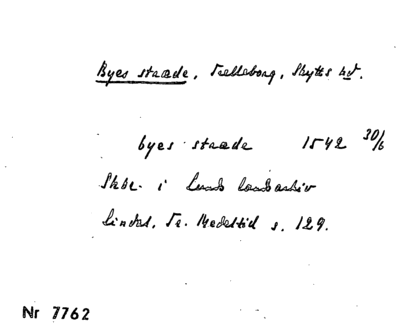 Byes stræde, Trelleborg, Skytts hd.
byes stræde 1542 30/6
Skbr. i Lunds landsarkiv
Lindal, Tr. Medeltid s. 129.
Nr 7762